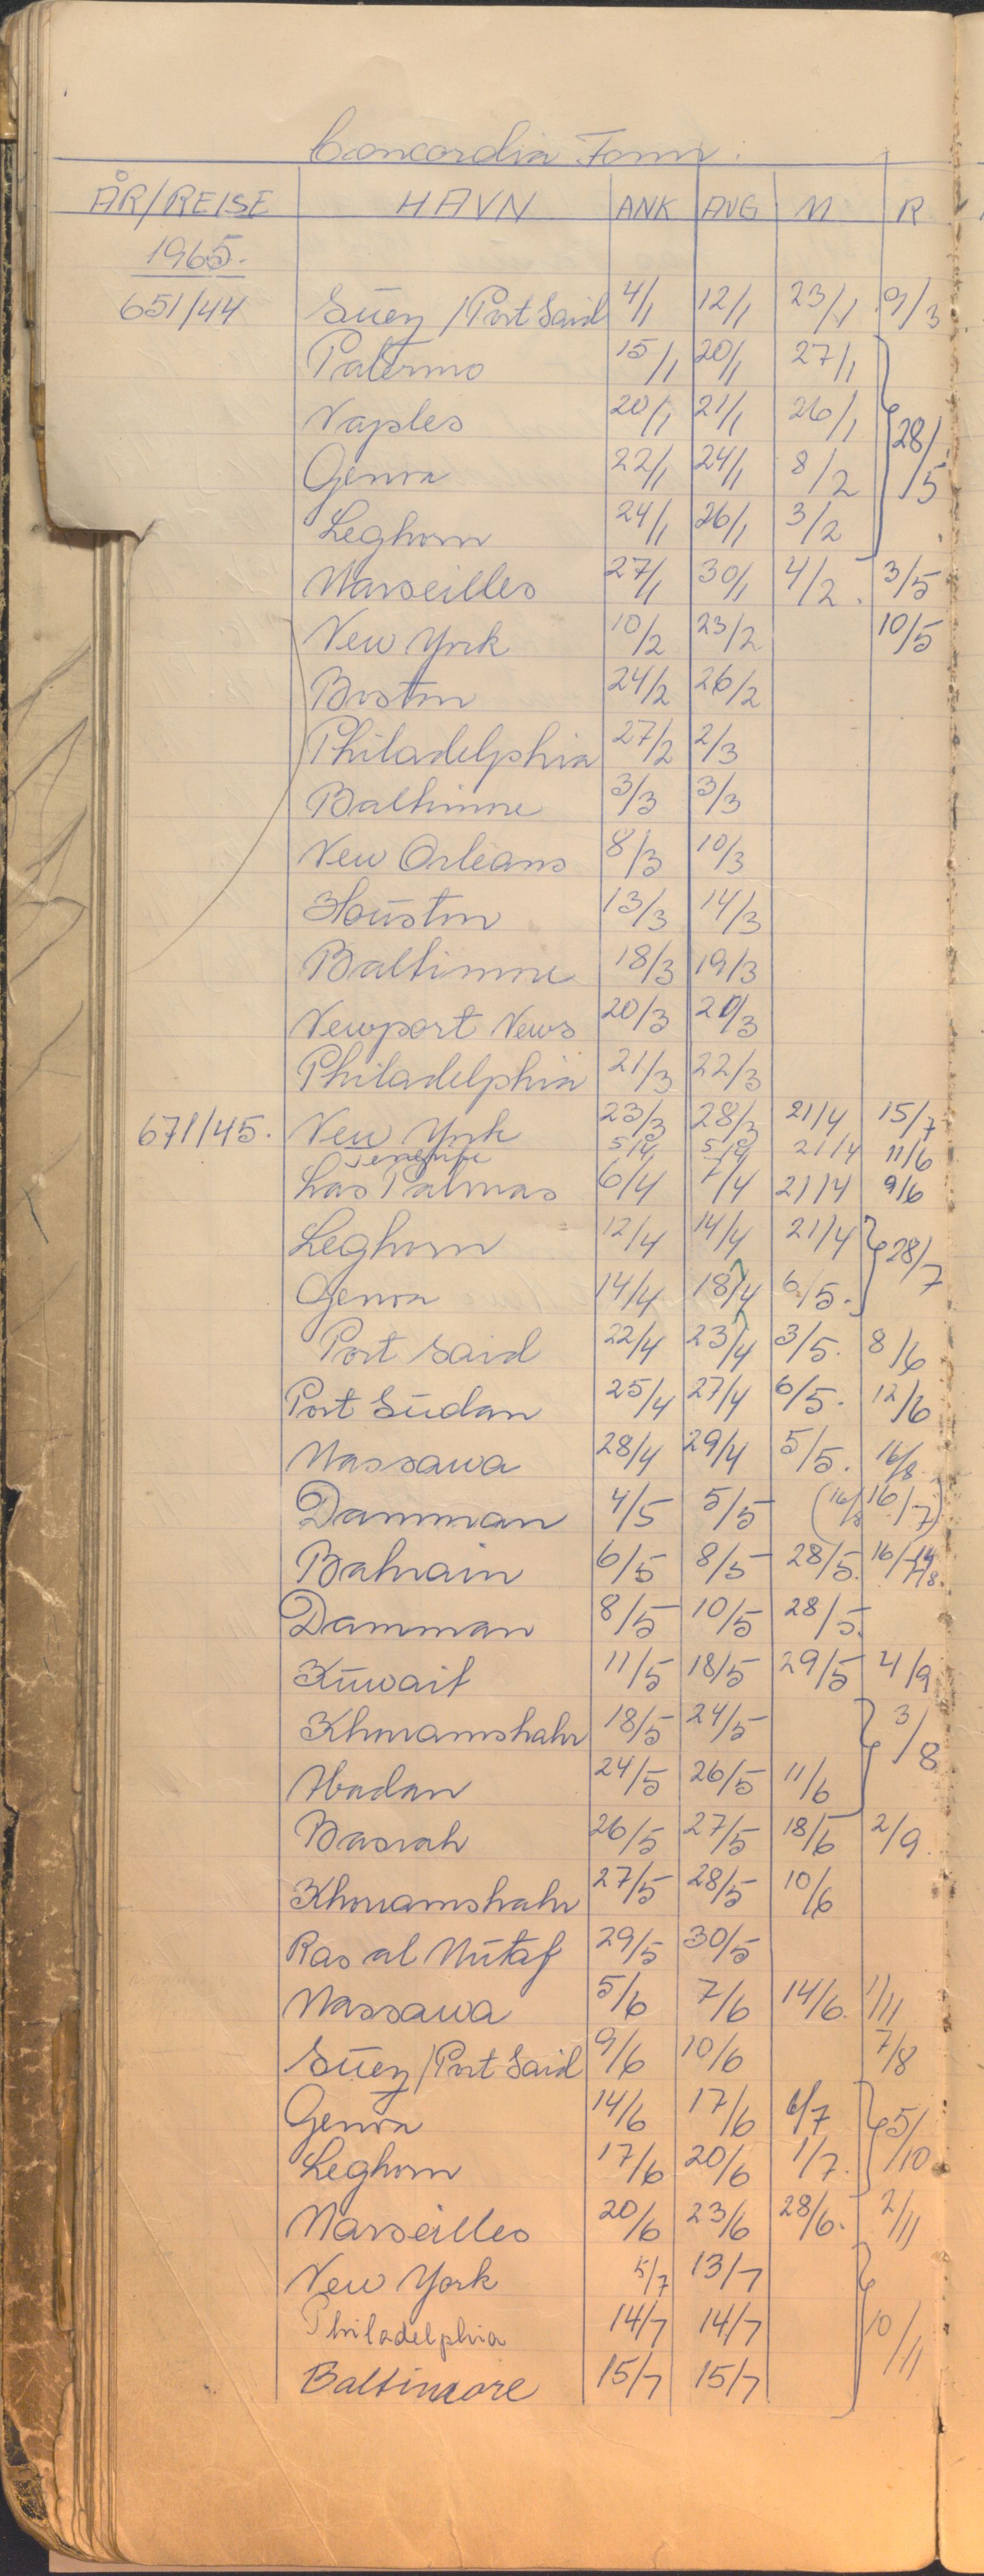 Concordia Fonn.
ÅR/REISE HAVN ANK AVG M R
1965.
651/44 Suez/Port Said 4/1 12/1 23/1 9/3
Palermo 15/1 20/1 27/1
Naples 20/1 21/1 26/1
28/5
Genoa 22/1 24/1 8/2
Leghorn 24/1 26/1 3/2
Marseilles 27/1 30/1 4/2. 3/5
New York 10/2 23/2 10/5
Boston 24/2 26/2
Philadelphia 27/2 2/3
Baltimore 3/3 3/3
New Orleans 8/3 10/3
Houston 13/3 14/3
Baltimore 18/3 19/3
Newport News 20/3 20/3
Philadelphia 21/3 22/3
671/45. New York 23/3 28/3 21/4 15/7
Tenerife 5/4 5/4 21/4 11/6
Las Palmas 6/4 7/4 21/4 9/6
Leghorn 12/4 14/4 21/4 28/7
Genoa 14/4 18/4 6/5.
Port Said 22/4 23/4 3/5. 8/6
Port Sudan 25/4 27/4 6/5. 12/6
Massawa 28/4 29/4 5/5. 16/8
Damman 4/5 5/5 16/7)
Bahrain 6/5 8/5 28/5. 16/
Damman 8/5 10/5 28/5.
Kuwait 11/5 18/5 29/5 4/9
Khoramshahr 18/5 24/5 3/8
Abadan 24/5 26/5 11/6
Basrah 26/5 27/5 18/6 2/9.
Khoramshahr 27/5 28/5 10/6
Ras al Mutaf 29/5 30/5
Massawa 5/6 7/6 14/6. 1/11
Suez/Port Said 9/6 10/6 7/8
Genoa 14/6 17/6 6/7 5/10
Leghorn 17/6 20/6 1/7.
Marseilles 20/6 23/6 28/6. 2/11
New York 5/7 13/7
Philadelphia 14/7 14/7 10/11
Baltimore 15/7 15/7